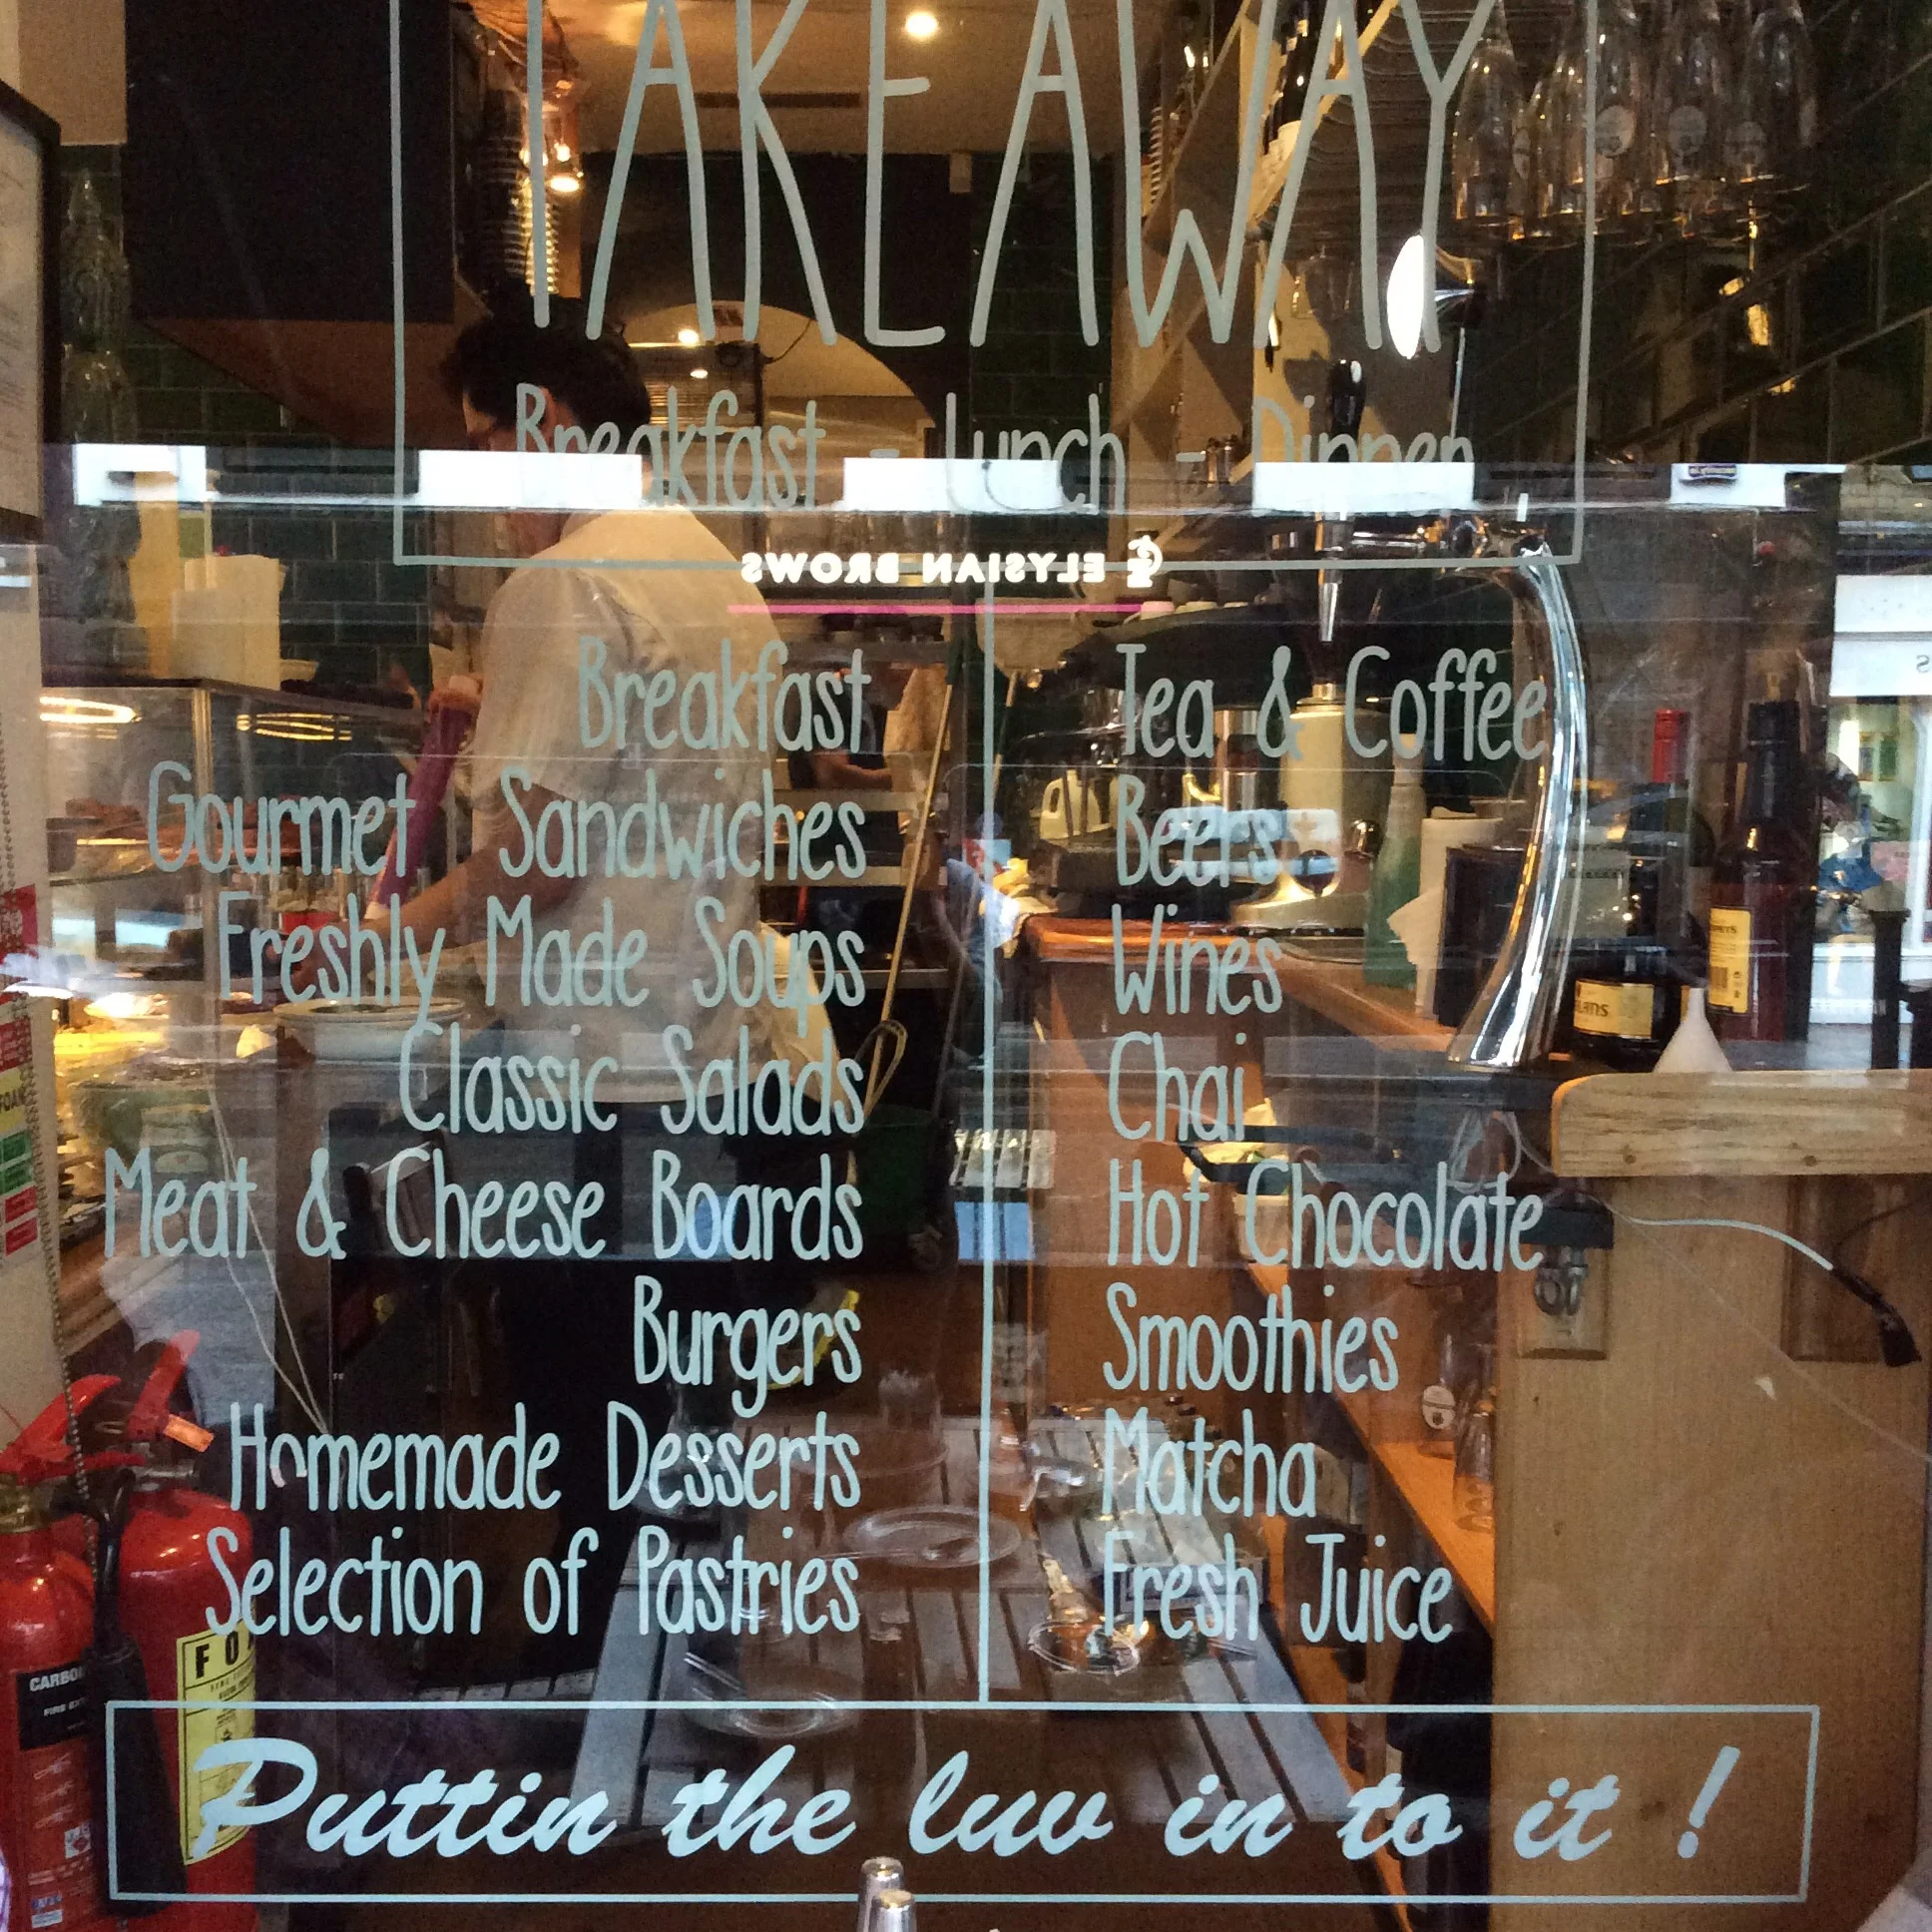 TAKEAWAY
Breakfast - Lunch - Dinner
ELYSIAN BROWS
Breakfast
Gourmet Sandwiches
Freshly Made Soups
Classic Salads
Meat & Cheese Boards
Burgers
Homemade Desserts
Selection of Pastries
Tea & Coffee
Beers
Wines
Chai
Hot Chocolate
Smoothies
Matcha
Fresh Juice
Puttin the luv in to it !